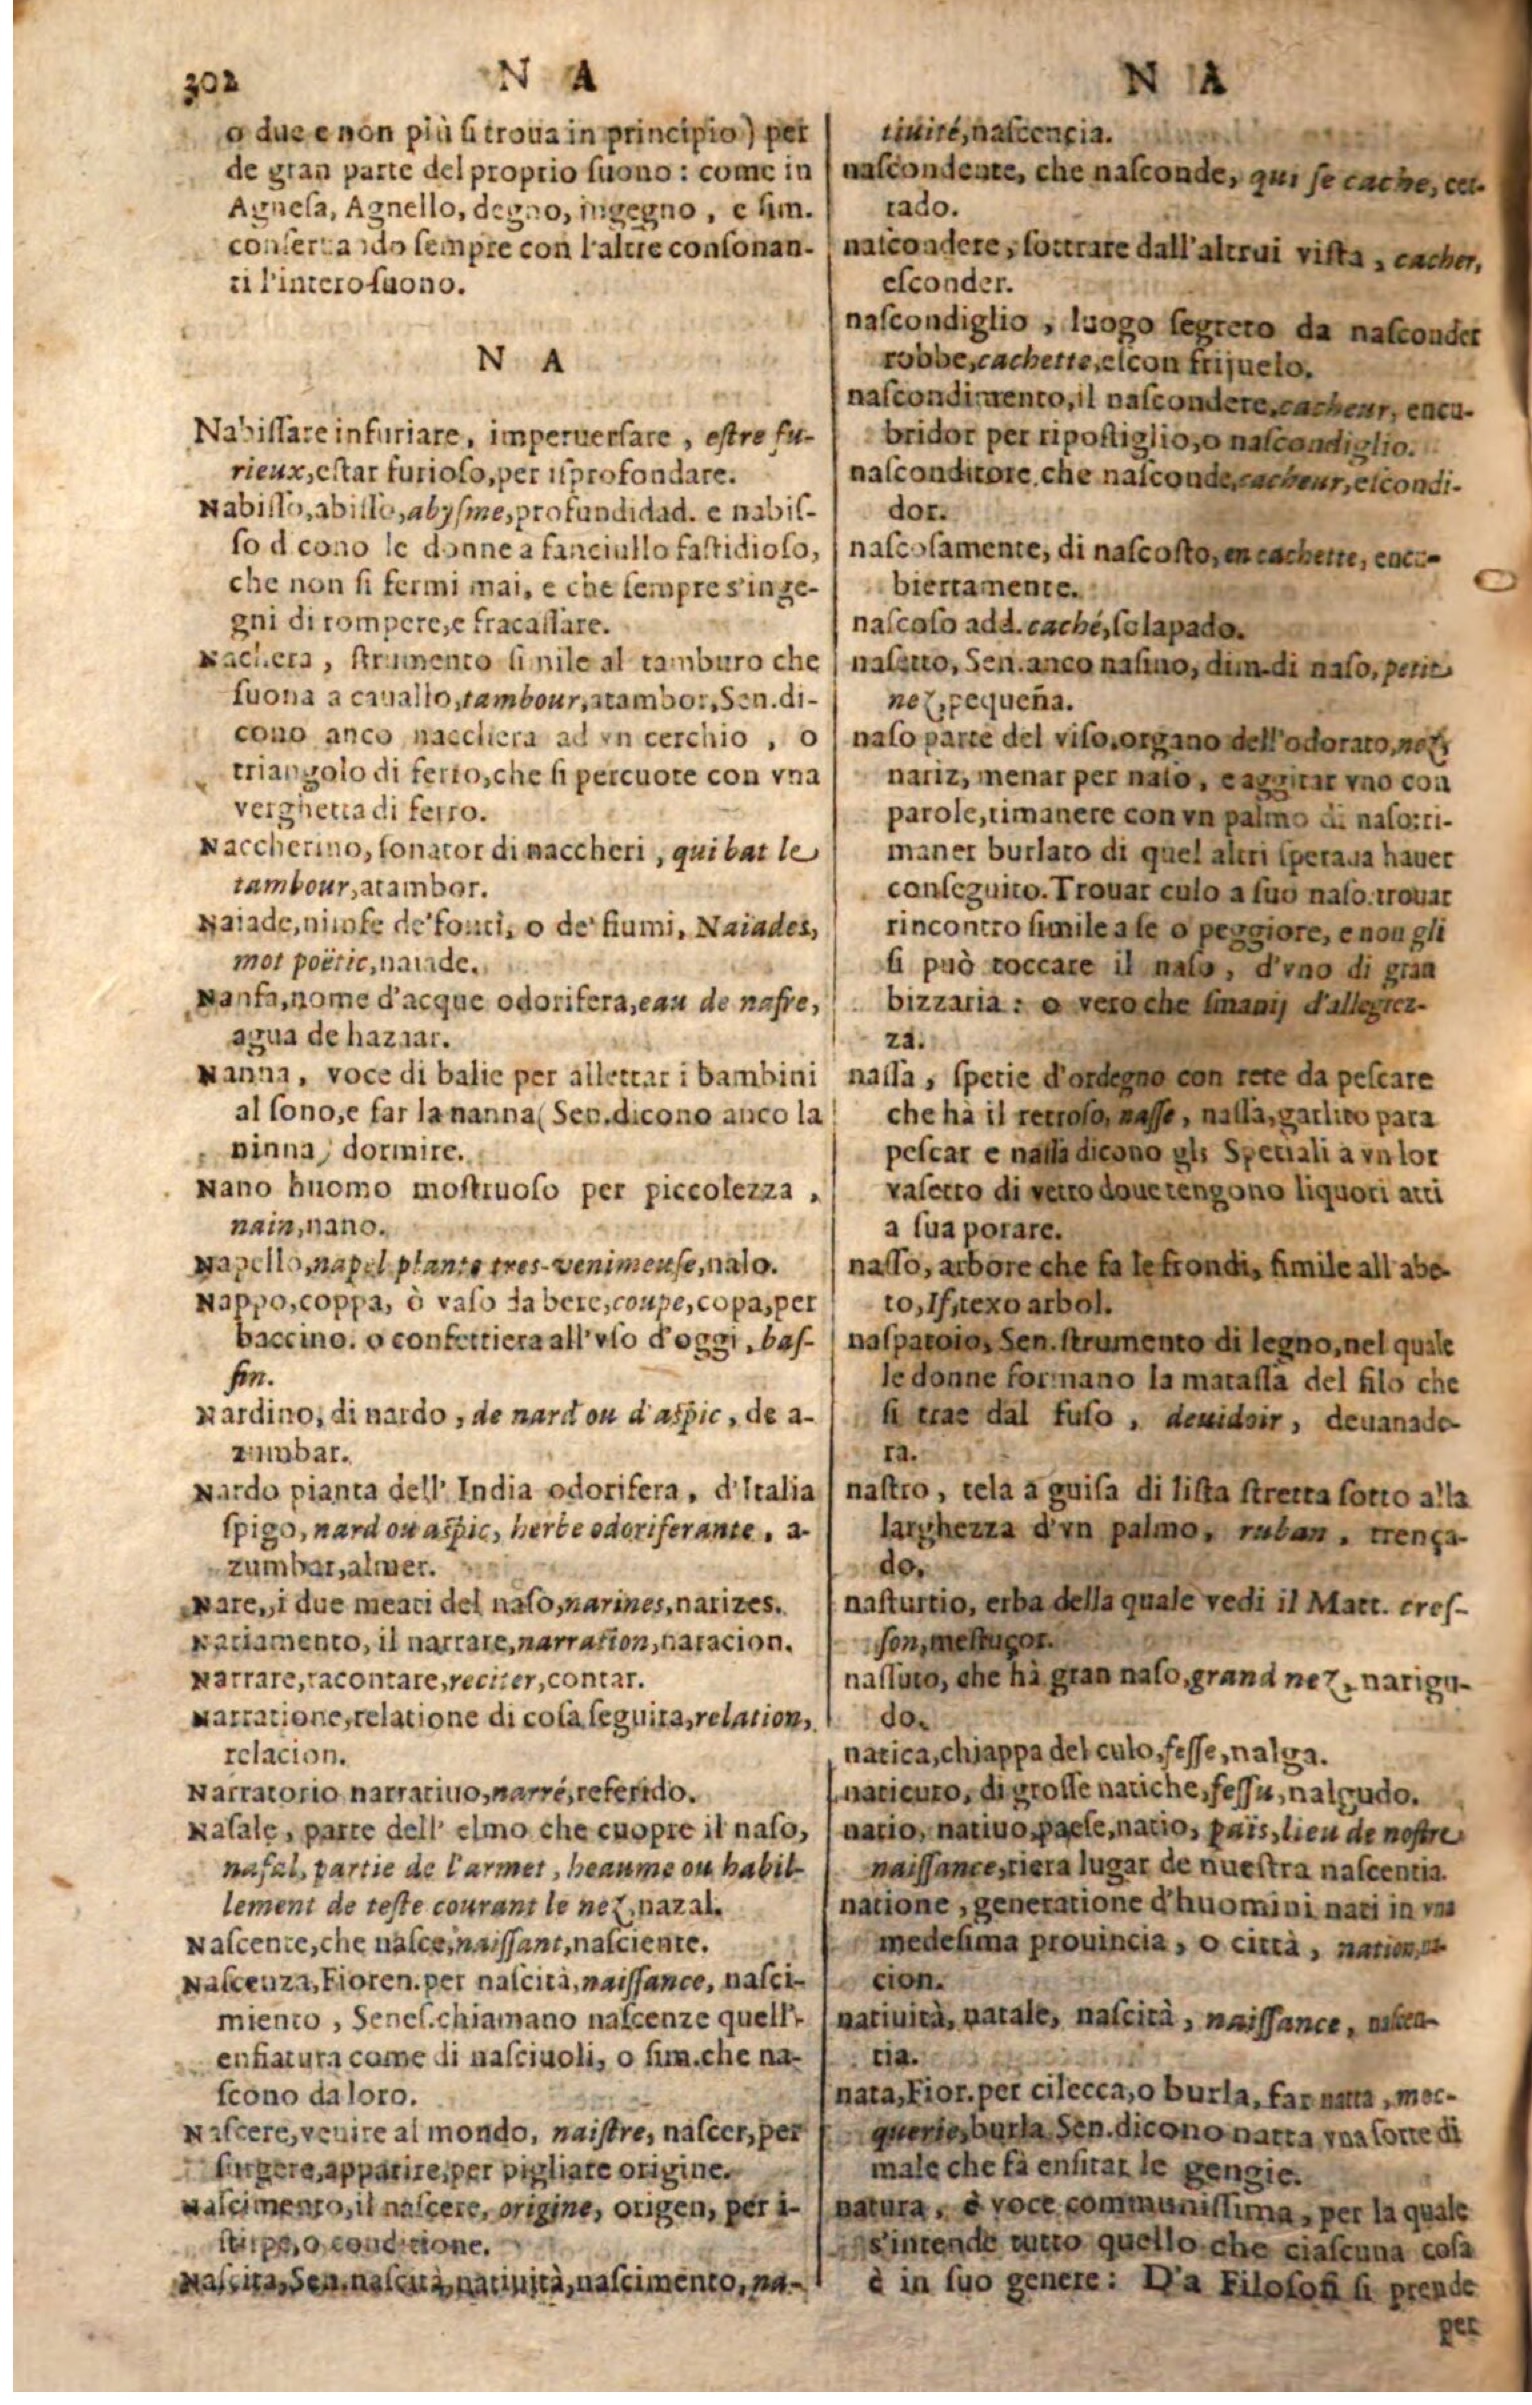 302
N A
N A
o due e non più ſi troua in principio) per
de gran parte del proprio ſuono : come in
Agneſa, Agnello, degno, ingegno, e ſim.
conſeruando ſempre con l'altre conſonan-
ti l'intero ſuono.
N A
Nabiſſare infuriare, imperuerſare, eſtre fu-
rieux, eſtar furioſo, per iſprofondare.
Nabiſſo, abiſſo, abyſme, profundidad. e nabiſ-
ſo dicono le donne a fanciullo faſtidioſo,
che non ſi fermi mai, e che ſempre s'inge-
gni di rompere, e fracaſſare.
Nachera, ſtrumento ſimile al tamburo che
ſuona a cauallo, tambour, atambor, Sen. di-
cono anco nacchera ad vn cerchio, o
triangolo di ferro, che ſi percuote con vna
verghetta di ferro.
Naccherino, ſonator di naccheri, qui bat le
tambour, atambor.
Naiade, ninfe de' fonti, o de' fiumi, Naiades,
mot poëtic, naiade.
Nanfa, nome d'acque odorifera, eau de nafre,
agua de hazaar.
Nanna, voce di balie per allettar i bambini
al ſono, e far la nanna (Sen. dicono anco la
ninna) dormire.
Nano huomo moſtruoſo per piccolezza,
nain, nano.
Napello, napel plante tres-venimeuſe, nalo.
Nappo, coppa, ò vaſo da bere, coupe, copa, per
baccino. o confettiera all'vſo d'oggi, baſ-
ſin.
Nardino, di nardo, de nard ou d'aſpic, de a-
zumbar.
Nardo pianta dell' India odorifera, d'Italia
ſpigo, nard ou aſpic, herbe odoriferante, a-
zumbar, almer.
Nare, i due meati del naſo, narines, narizes.
Narramento, il narrare, narration, naracion.
Narrare, racontare, reciter, contar.
Narratione, relatione di coſa ſeguita, relation,
relacion.
Narratorio narratiuo, narré, referido.
Naſale, parte dell' elmo che cuopre il naſo,
naſal, partie de l'armet, heaume ou habil-
lement de teſte courant le nez, nazal.
Naſcente, che naſce, naiſſant, naſciente.
Naſcenza, Fioren. per naſcità, naiſſance, naſci-
miento, Seneſ. chiamano naſcenze quell'-
enfiatura come di naſciuoli, o ſim. che na-
ſcono da loro.
Naſcere, venire al mondo, naiſtre, naſcer, per
ſurgere, apparire, per pigliare origine.
Naſcimento, il naſcere, origine, origen, per i-
ſtirpe, o conditione.
Naſcita, Sen. naſcità, natiuità, naſcimento, na-
tiuité, naſcencia.
naſcondente, che naſconde, qui ſe cache, cer-
rado.
naſcondere, ſottrare dall'altrui viſta, cacher,
eſconder.
naſcondiglio, luogo ſegreto da naſconder
robbe, cachette, eſcon ſrijuelo.
naſcondimento, il naſcondere, cacheur, encu-
bridor per ripoſtiglio, o naſcondiglio.
naſconditore, che naſconde, cacheur, eſcondi-
dor.
naſcoſamente, di naſcoſto, en cachette, encu-
biertamente.
naſcoſo add. caché, ſolapado.
naſetto, Sen. anco naſino, dim. di naſo, petit
nez, pequeña.
naſo parte del viſo, organo dell'odorato, nez,
nariz, menar per naſo, e aggirar vno con
parole, rimanere con vn palmo di naſo: ri-
maner burlato di quel altri ſperaua hauer
conſeguito. Trouar culo a ſuo naſo. trouar
rincontro ſimile a ſe o peggiore, e non gli
ſi può toccare il naſo, d'vno di gran
bizzaria : o vero che ſmanij d'allegrez-
za.
naſſa, ſpetie d'ordegno con rete da peſcare
che ha il retroſo, naſſe, naſſa, garlito para
peſcar e naſſa dicono gli Spetiali a vn lor
vaſetto di vetro doue tengono liquori atti
a ſua porare.
naſſo, arbore che fa le frondi, ſimile all'abe-
to, If, texo arbol.
naſpatoio, Sen. ſtrumento di legno, nel quale
le donne formano la mataſſa del filo che
ſi trae dal fuſo, deuidoir, deuanade-
ra.
naſtro, tela a guiſa di liſta ſtretta ſotto alla
larghezza d'vn palmo, ruban, trença-
do.
naſturtio, erba della quale vedi il Matt. creſ-
ſon, meſtuços.
naſſuto, che hà gran naſo, grand nez, narigu-
do.
natica, chiappa del culo, feſſe, nalga.
naticuto, di groſſe natiche, feſſu, nalgudo.
natio, natiuo, paeſe, natio, païs, lieu de noſtre
naiſſance, tiera lugar de nueſtra naſcentia.
natione, generatione d'huomini nati in vna
medeſima prouincia, o città, nation, na-
cion.
natiuità, natale, naſcità, naiſſance, naſcen-
tia.
nata, Fior. per cilecca, o burla, far natta, moc-
querie, burla. Sen. dicono natta vna ſorte di
male che fà enfiar le gengie.
natura, è voce communiſſima, per la quale
s'intende tutto quello che ciaſcuna coſa
è in ſuo genere: D'a Filoſofi ſi prende
per